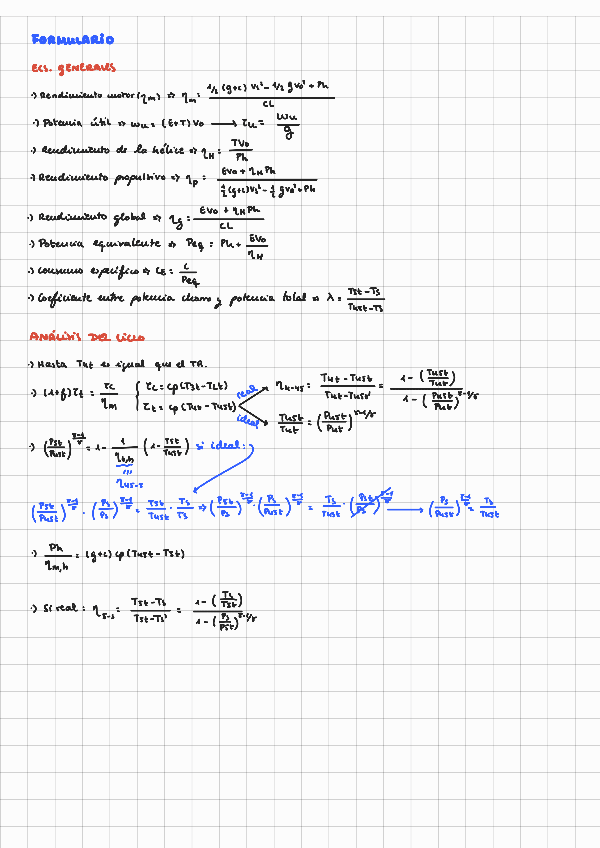 FORMULARIO
ECS. GENERALES
·) Rendimiento motor (ηm) ⇒ ηm = (1/2 (g+c) Vs² - 1/2 g V0² + Ph) / CL
·) Potencia útil ⇒ Wu = (E+T) V0 → τu = Wu / g
·) Rendimiento de la hélice ⇒ ηH = TV0 / Ph
·) Rendimiento propulsivo ⇒ ηp = (EV0 + ηH Ph) / (1/2 (g+c) Vs² - 1/2 g V0² + Ph)
·) Rendimiento global ⇒ ηg = (EV0 + ηH Ph) / CL
·) Potencia equivalente ⇒ Peq = Ph + EV0 / ηH
·) Consumo específico ⇒ CE = C / Peq
·) Coeficiente entre potencia chorro y potencia total ⇒ λ = (T5t - Ts) / (T45t - Ts)
ANÁLISIS DEL CICLO
·) Hasta T4t es igual que el TR.
·) (1+f) τt = τc / ηm { τc = cp (T3t - T2t)
τt = cp (T4t - T45t)
real
η4-45 = (T4t - T45t) / (T4t - T45t') = (1 - (T45t / T4t)) / (1 - (P45t / P4t)^γ-1/γ)
ideal
T45t / T4t = (P45t / P4t)^γ-1/γ
·) (P5t / P45t)^γ-1/γ = 1 - 1 / ηt,h (1 - T5t / T45t) si ideal:
η45-5
(P5t / P45t)^γ-1/γ · (Ps / Ps)^γ-1/γ = T5t / T45t · Ts / Ts ⇒ (P5t / Ps)^γ-1/γ · (Ps / P45t)^γ-1/γ = Ts / T45t · (P5t / Ps)^γ-1/γ → (Ps / P45t)^γ-1/γ = Ts / T45t
·) Ph / ηm,h = (g+c) cp (T45t - T5t)
·) Si real: η5-s = (T5t - Ts) / (T5t - Ts') = (1 - (Ts / T5t)) / (1 - (Ps / P5t)^γ-1/γ)